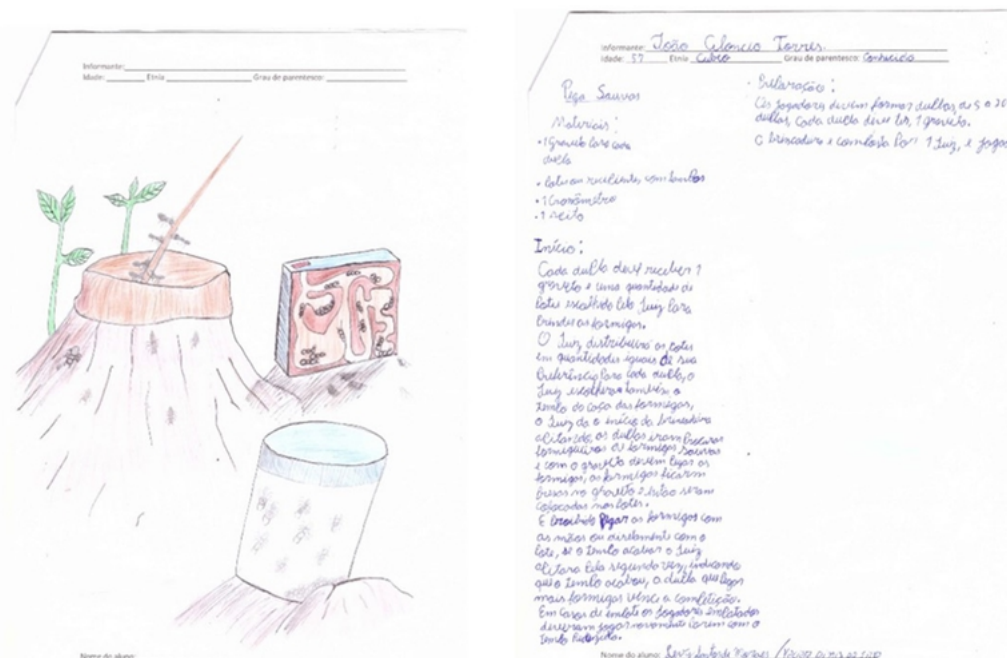 Informante:
Idade: Etnia Grau de parentesco:
Nome do aluno:
Informante: João Torres.
Idade: 57 Etnia Cubeo Grau de parentesco: Conhecido
Pega Sauvas
Materiais:
• 1 Graveto para cada
dupla
• Potes ou recipientes com tampas
• 1 Cronômetro
• 1 Apito
Início:
Cada dupla deve receber 1
graveto e uma quantidade de
potes escolhido pelo Juiz para
prender as formigas.
O Juiz distribuira os potes
em quantidades iguais de sua
preferência para cada dupla, o
Juiz escolhera também o
tempo da caça das formigas,
o Juiz da o início da brincadeira
apitando, as duplas iram procurar
formigueiros de formigas sauvas
e com o graveto devem pegar as
formigas, as formigas ficaram
presas no graveto e então seram
colocadas nos potes.
É proibido pegar as formigas com
as mãos ou diretamente com o
pote, se o tempo acabar o Juiz
apitara pela segunda vez, indicando
que o tempo acabou, a dupla que pegar
mais formigas vence a competição.
Em casos de empate os jogadores empatados
deveram jogar novamente porem com o
tempo Reduzido.
• Preparação:
Os jogadores devem formar duplas, de 5 a
duplas, cada dupla deve ter, 1 graveto.
A brincadeira e composta por: 1 Juiz, e
Nome do aluno: de Moraes